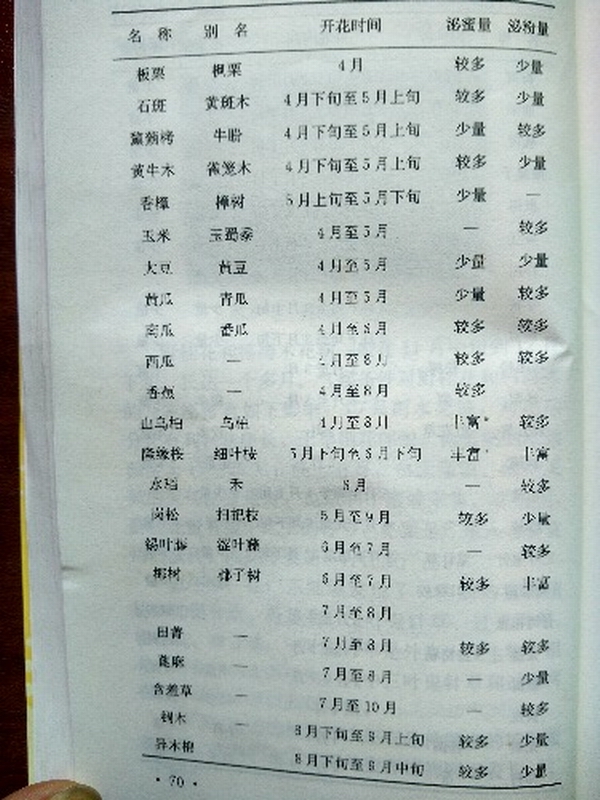 名 称 别 名 开花时间 泌蜜量 泌粉量
板栗 枫栗 4月 较多 少量
石斑 黄斑木 4月下旬至5月上旬 较多 少量
牛盼 4月下旬至5月上旬 少量 较多
黄牛木 雀笼木 4月下旬至5月上旬 较多 少量
香樟 樟树 5月上旬至5月下旬 少量 —
玉米 玉蜀黍 4月至5月 — 较多
大豆 黄豆 4月至5月 少量 少量
黄瓜 青瓜 4月至5月 少量 较多
南瓜 番瓜 4月至8月 较多 较多
西瓜 — 4月至8月 较多 较多
香蕉 — 4月至8月 较多
山乌桕 乌桕 4月至8月 丰富* 较多
隆缘桉 细叶桉 5月下旬至 月下旬 丰富* 丰富
水稻 禾 月 — 较多
岗松 扫把枝 5月至9月 较多 少量
锡叶藤 涩叶藤 6月至7月 — 较多
椰树 椰子树 6月至7月 较多 丰富
7月至8月
田菁 — 7月至8月 较多 较多
蓖麻 7月至8月 — 少量
含羞草 — 7月至10月 — 较多
木 — 8月下旬至9月上旬 较多 少量
异木棉 8月下旬至9月中旬 较多 少量
· 70 ·